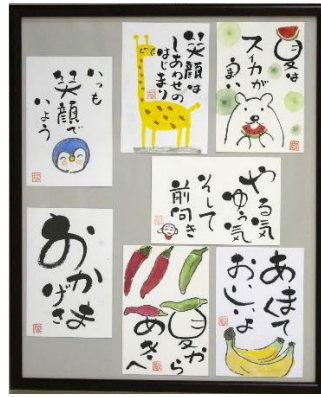 いつも
笑顔で
いよう
笑顔は
しあわせの
はじまり
夏は
スイカが
うまい
やる気
ゆう気
そして
前向き
おかげさま
夏から
あきへ
あまくて
おいしいよ